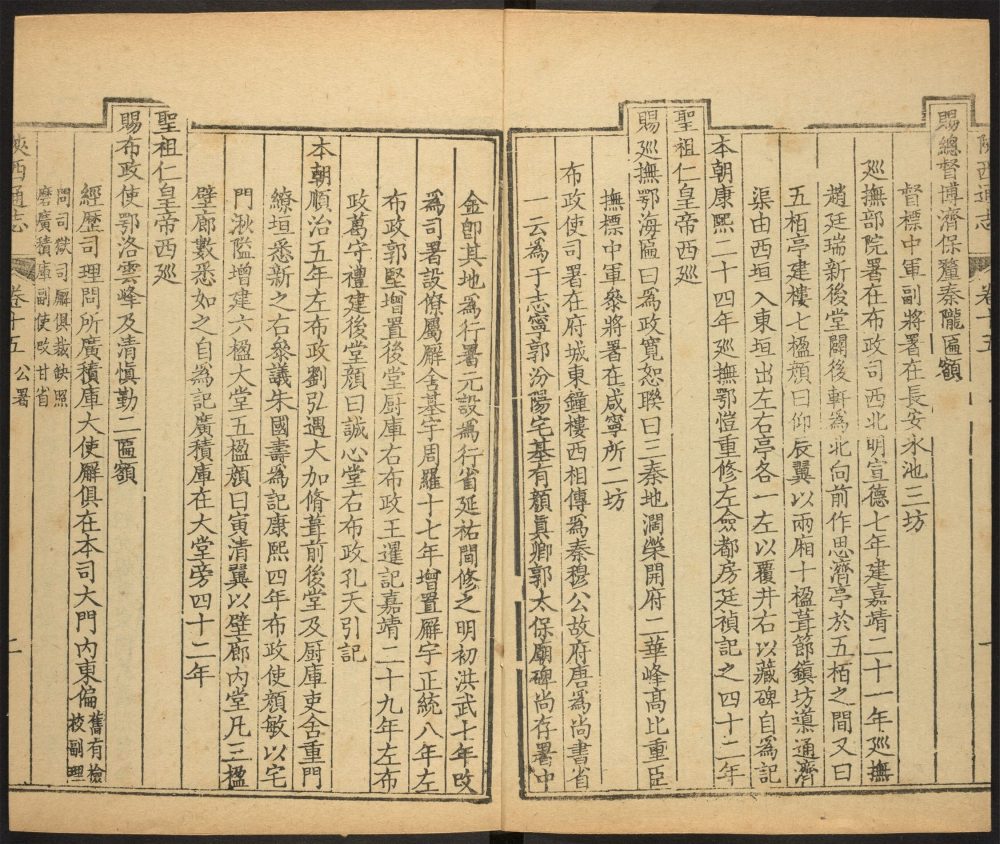 陝西通志 卷十五
賜總督博濟保釐秦隴匾額
督標中軍副將署在長安永池三坊
巡撫部院署在布政司西北明宣德七年建嘉靖二十一年巡撫
趙廷瑞新後堂闢後軒為北向前作思濟亭於五栢之間又曰
五栢亭建樓七楹顏曰仰辰翼以兩廂十楹葺節鎮坊導通濟
渠由西垣入東垣出左右亭各一左以覆井右以藏碑自為記
本朝康熙二十四年巡撫鄂愷重修左僉都房廷禎記之四十二年
聖祖仁皇帝西巡
賜巡撫鄂海匾曰為政寬恕聨曰三秦地濶榮開府二華峰高比重臣
撫標中軍叅將署在咸寧所二坊
布政使司署在府城東鐘樓西相傳為秦穆公故府唐為尚書省
一云為于志寧郭汾陽宅基有顏真卿郭太保廟碑尚存署中
金卽其地為行署元設為行省延祐間修之明初洪武十年改
為司署設僚屬廨舍基宇周羅十七年增置廨宇正統八年左
布政郭堅增置後堂厨庫右布政王暹記嘉靖二十九年左布
政葛守禮建後堂顏曰誠心堂右布政孔天引記
本朝順治五年左布政劉弘遇大加脩葺前後堂及厨庫吏舍重門
繚垣悉新之右叅議朱國壽為記康熙四年布政使顏敏以宅
門湫隘增建六楹大堂五楹顏曰寅清翼以壁廊內堂凡三楹
壁廊數悉如之自為記廣積庫在大堂旁四十二年
聖祖仁皇帝西巡
賜布政使鄂洛雲峰及清慎勤二匾額
經歷司理問所廣積庫大使廨俱在本司大門內東偏舊有檢
校副理
問司獄司廨俱裁缺照
磨廣積庫副使改甘省
陝西通志 卷十五 公署 二